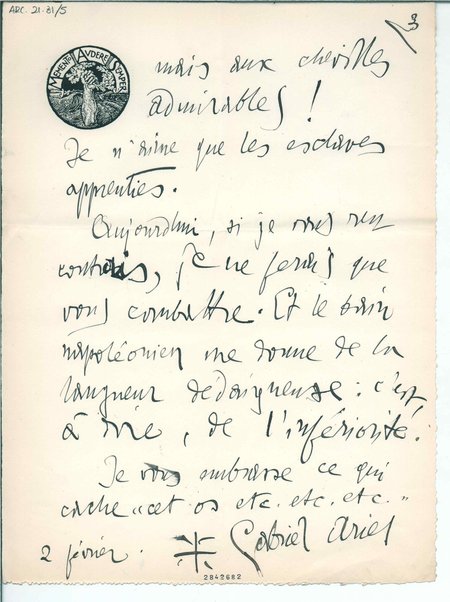 ARC. 21.31/5
3
MEMENTO AUDERE SEMPER
mais aux chevilles
admirables !
Je n'aime que les esclaves
apprenties.
Aujourdhui, si je vous ren
contrais, je ne ferais que
vous combattre. Et le bain
napoléonien me donne de la
langueur dedaigneuse : c'est
à dire, de l'infériorité.
Je vous embrasse ce qui
cache "cet os etc. etc. etc."
2 février. Gabriel Ariel
2842682